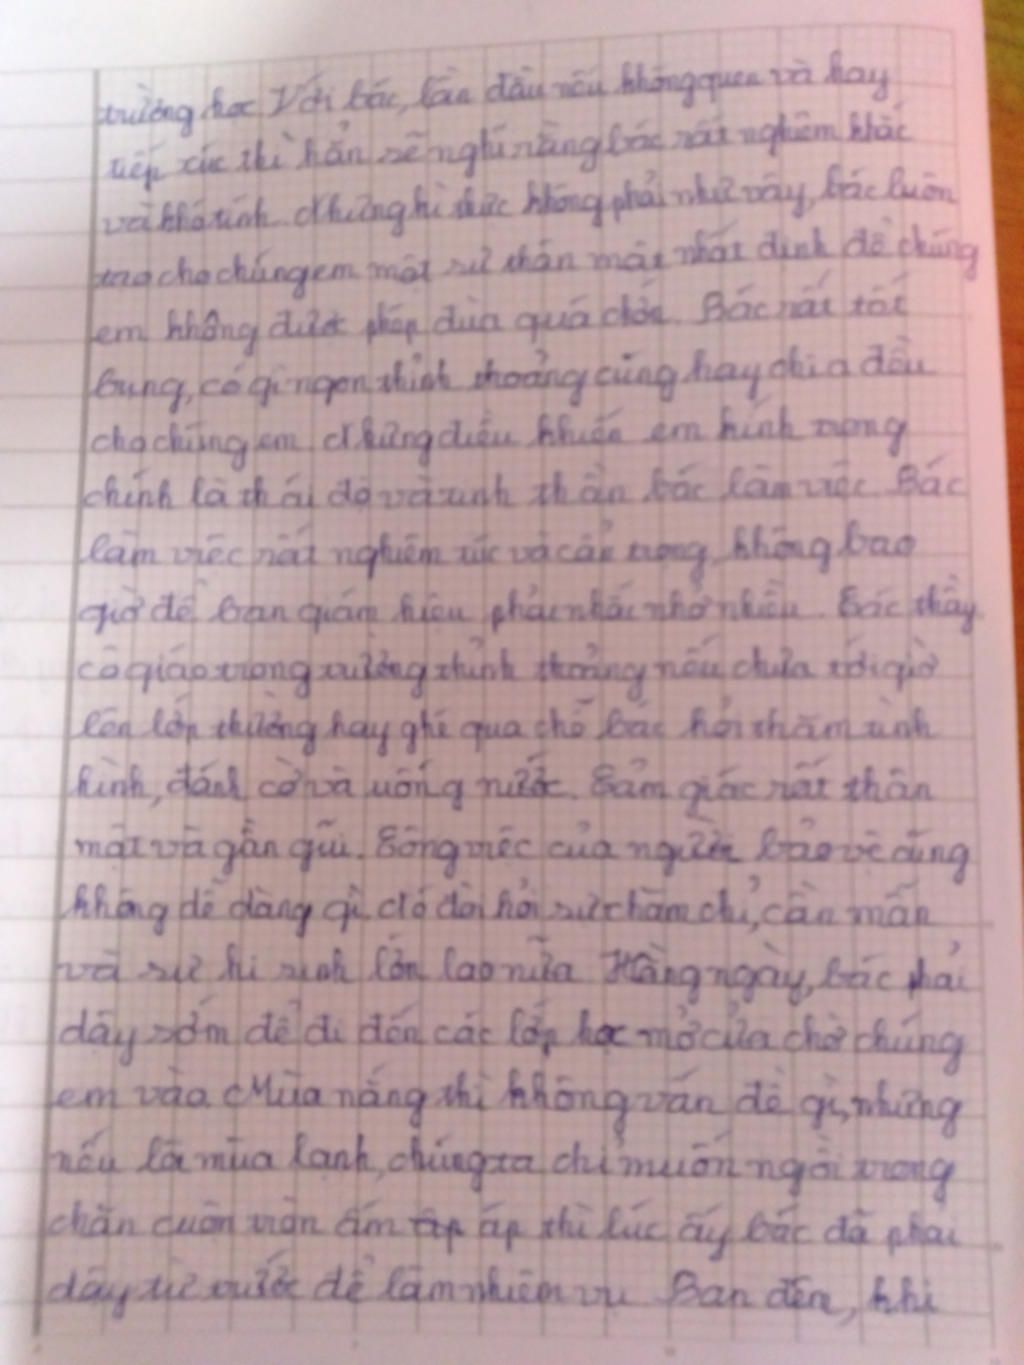 trường học Với bác, lần đầu nếu không quen và hay
tiếp xúc thì hẳn sẽ nghĩ rằng bác rất nghiêm khắc
và khó tính. Nhưng kì thực không phải như vậy, bác luôn
tạo cho chúng em một sự thân mật nhất định để chúng
em không được phép đùa quá chớn. Bác rất tốt
bụng, có gì ngon thỉnh thoảng cũng hay chia đều
cho chúng em. Nhưng điều khiến em kính trọng
chính là thái độ và tinh thần bác làm việc. Bác
làm việc rất nghiêm túc và cẩn trọng, không bao
giờ để ban giám hiệu phải nhắc nhở nhiều. Các thầy
cô giáo trong trường thỉnh thoảng nếu chưa tới giờ
lên lớp thường hay ghé qua chỗ bác hỏi thăm tình
hình, đánh cờ và uống nước. Cảm giác rất thân
mật và gần gũi. Công việc của người bảo vệ cũng
không dễ dàng gì, đó đòi hỏi sự chăm chỉ, cần mẫn
và sự hi sinh lớn lao nữa. Hằng ngày, bác phải
dậy sớm để đi đến các lớp học mở cửa chờ chúng
em vào. Mùa nắng thì không vấn đề gì, nhưng
nếu là mùa lạnh, chúng ta chỉ muốn ngồi trong
chăn cuộn tròn ấm áp thì lúc ấy bác đã phải
dậy từ trước để làm nhiệm vụ. Ban đêm, khi